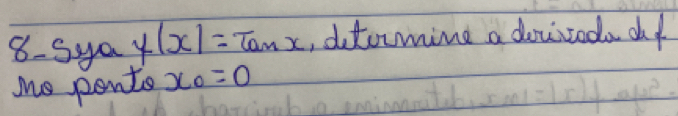 8- Seja f(x) = Tan x, determine a derivada de f
no ponto x₀ = 0